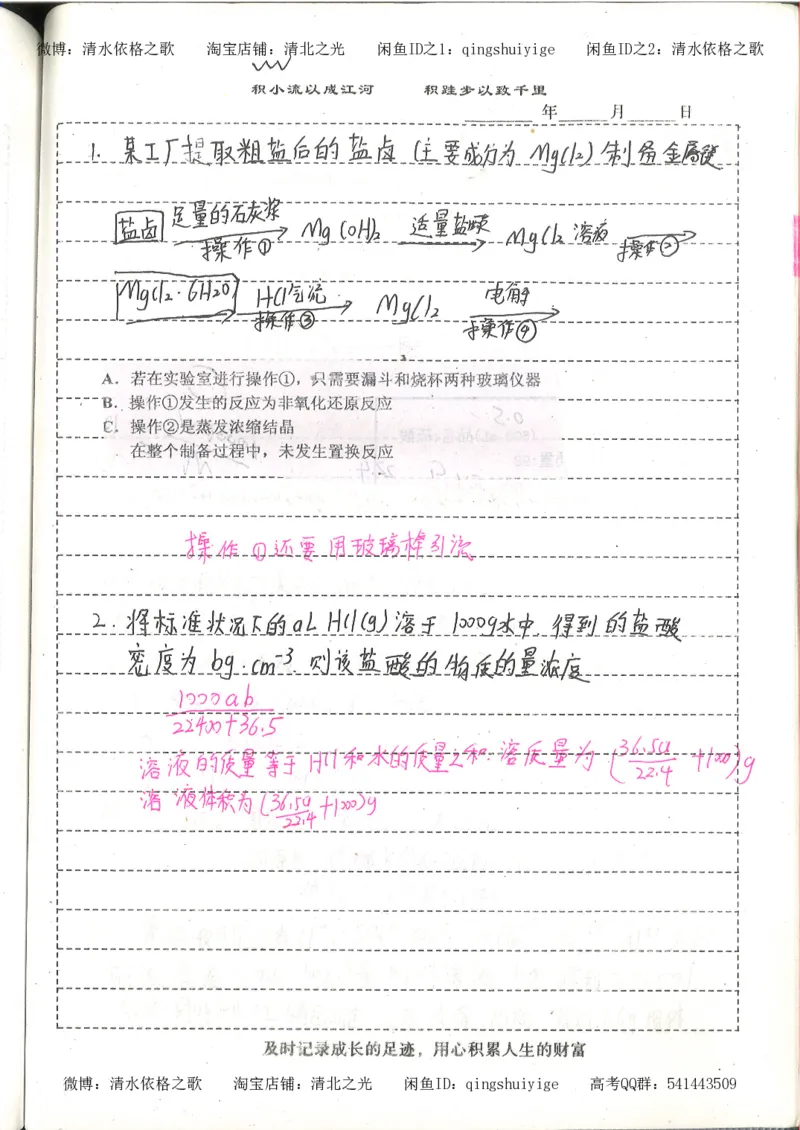 微博：清水依格之歌 淘宝店铺：清北之光 闲鱼ID之1：qingshuiyige 闲鱼ID之2：清水依格之歌
积小流以成江河 积跬步以致千里
年 月 日
1. 某工厂提取粗盐后的盐卤（主要成分为 MgCl2）制备金属镁
盐卤 足量的石灰浆 操作① Mg(OH)2 适量盐酸 MgCl2 溶液 操作②
MgCl2·6H2O HCl气流 操作③ MgCl2 电解 操作④
A. 若在实验室进行操作①，只需要漏斗和烧杯两种玻璃仪器
B. 操作①发生的反应为非氧化还原反应
C. 操作②是蒸发浓缩结晶
在整个制备过程中，未发生置换反应
操作①还要用玻璃棒引流
2. 将标准状况下的aL HCl(g)溶于1000g水中，得到的盐酸
密度为 bg·cm⁻³，则该盐酸的物质的量浓度
1000ab
22400+36.5
溶液的质量等于HCl和水的质量之和. 溶质量为 (36.5a/22.4 +1000)g
溶液体积为(36.5a/22.4+1000)g
及时记录成长的足迹，用心积累人生的财富
微博：清水依格之歌 淘宝店铺：清北之光 闲鱼ID：qingshuiyige 高考QQ群：541443509